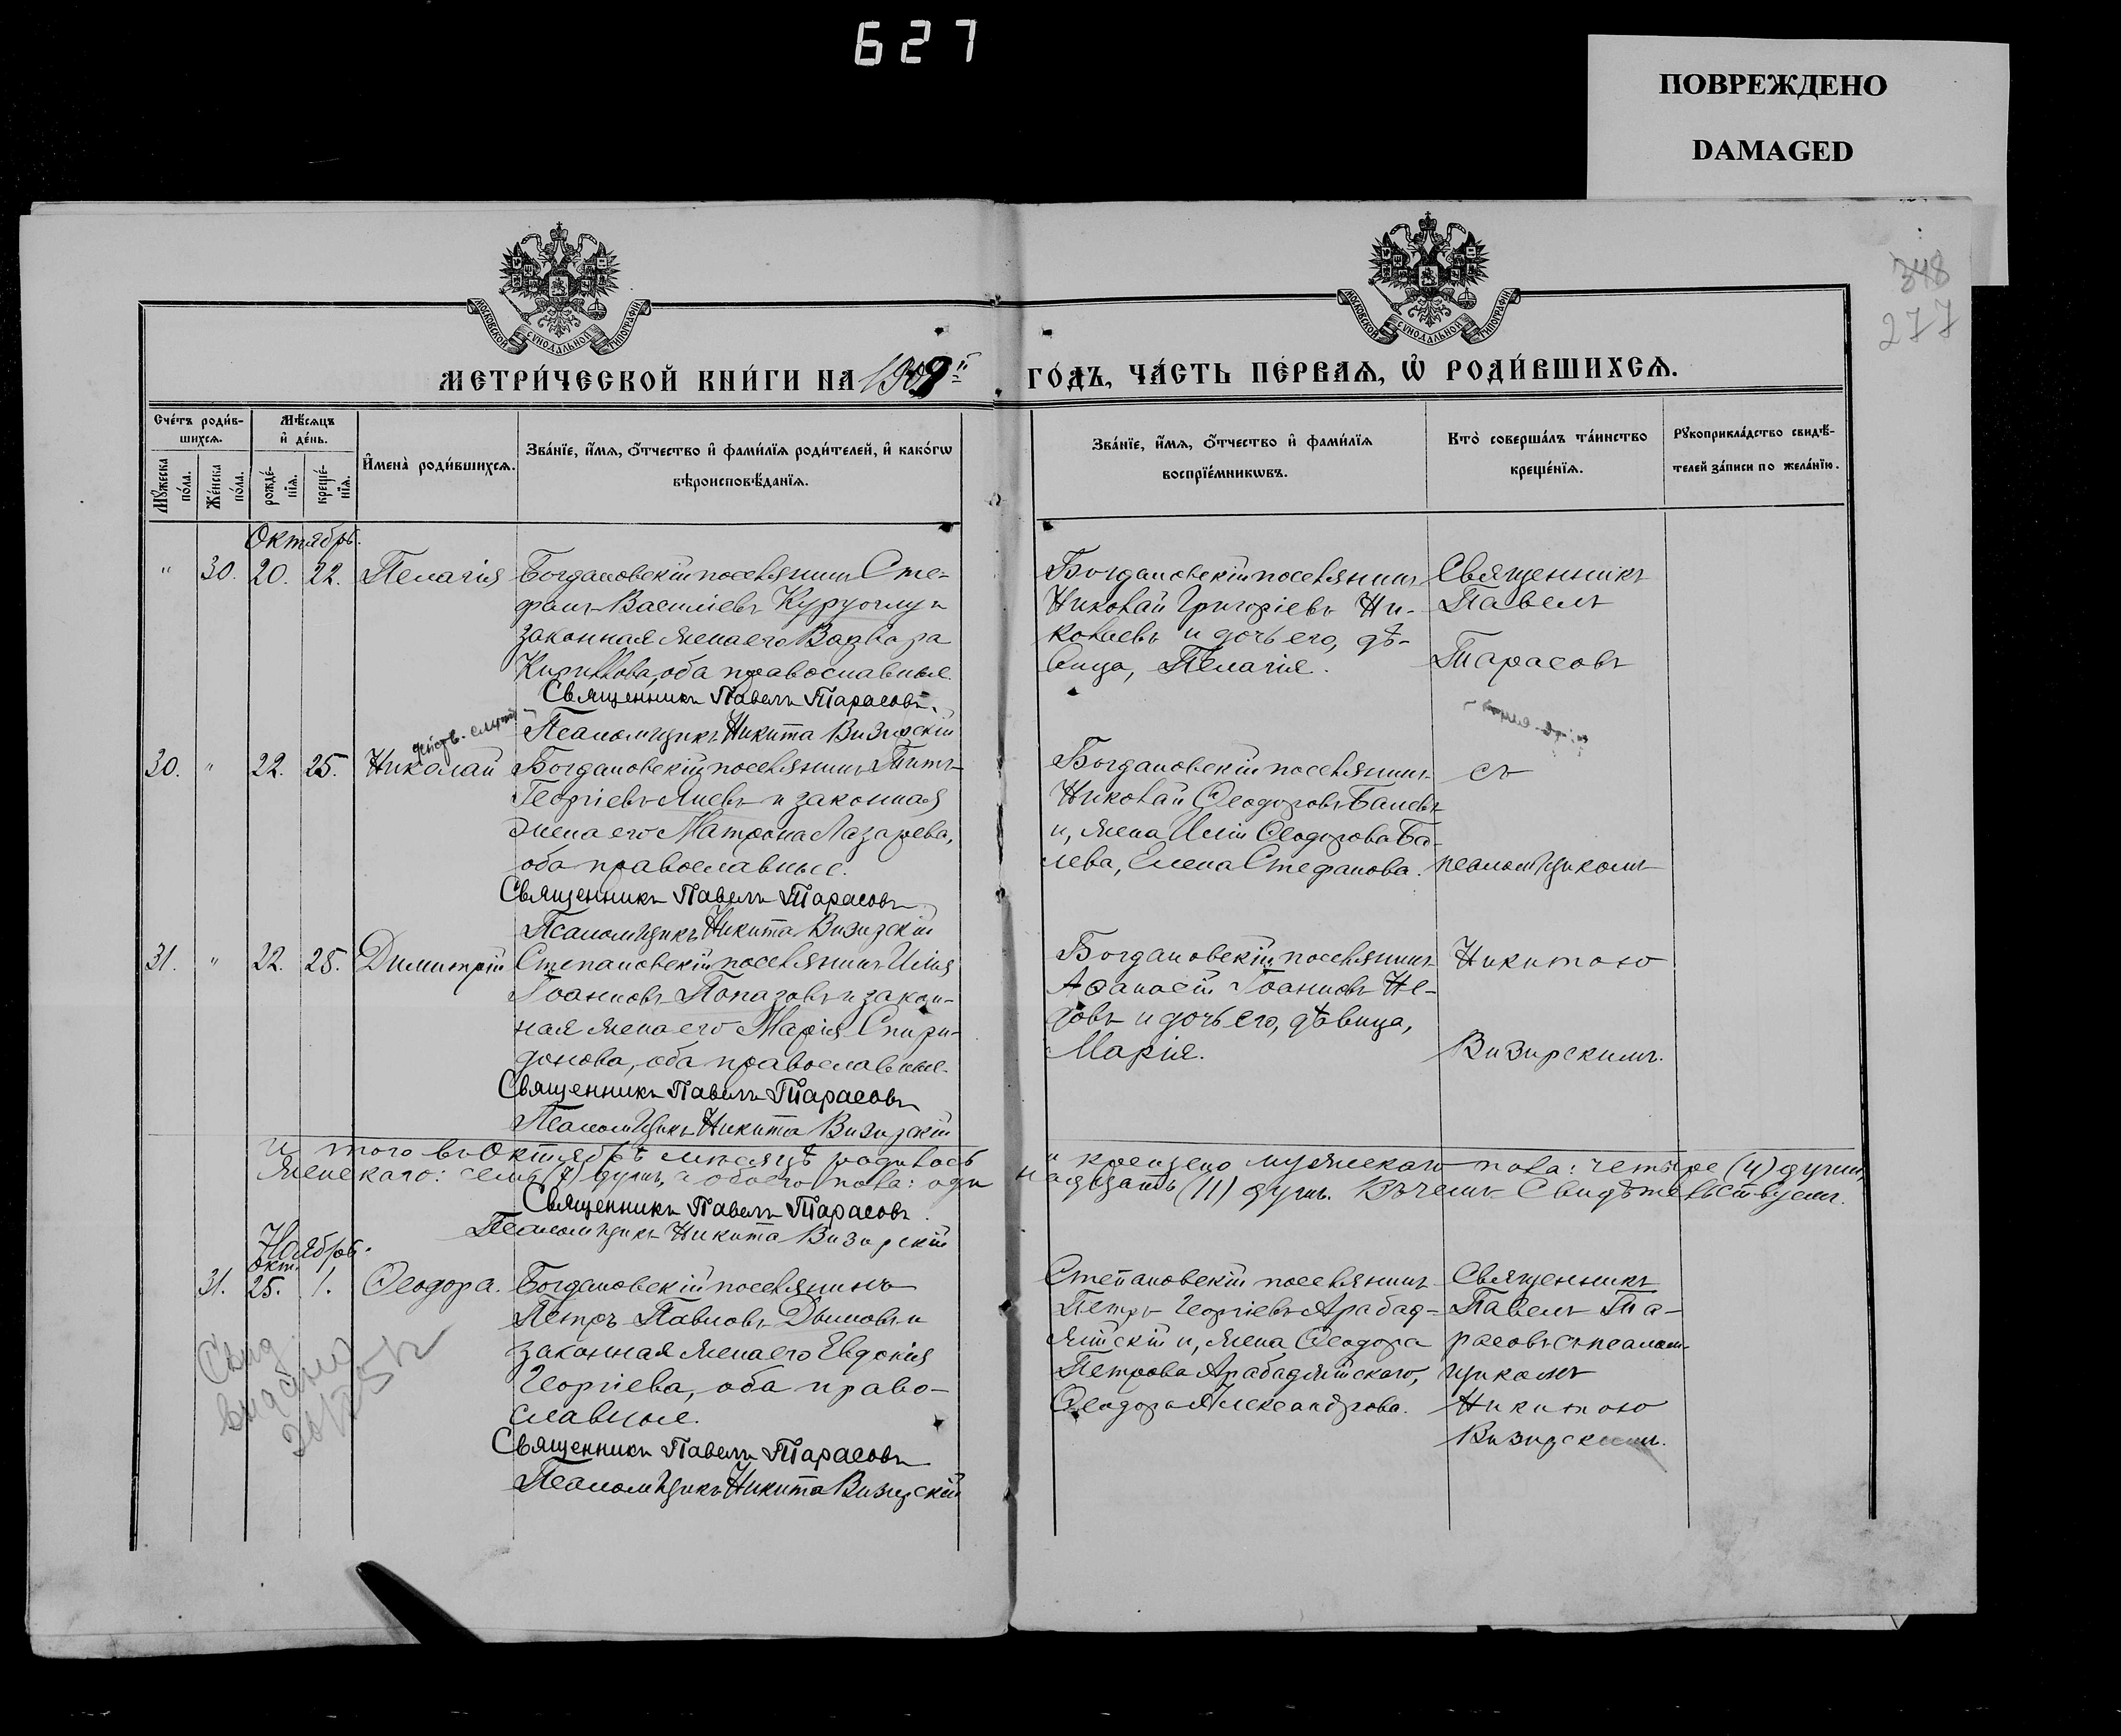 627
ПОВРЕЖДЕНО
DAMAGED
348
277
МОСКОВСКОЙ СУНОДАЛЬНОЙ ТИПОГРАФІИ
МОСКОВСКОЙ СУНОДАЛЬНОЙ ТИПОГРАФІИ
МЕТРИ́ЧЕСКОЙ КНИ́ГИ НА 1909й ГО́ДЪ, ЧА́СТЬ ПЕ́РВАЯ, Ѡ҆ РОДИ́ВШИХСЯ.
Сче́тъ роди́в-
шихся.
Мѣ́сяцъ
и҆ де́нь.
Мꙋ́жеска
по́ла.
Же́нска
по́ла.
рожде́-
нїя.
креще́-
нїя.
И҆мена̀ роди́вшихся.
Зва́нїе, и҆́мя, ѻ҆́тчество и҆ фами́лїя роди́телей, и҆ како́гѡ
вѣроисповѣ́данїя.
Зва́нїе, и҆́мя, ѻ҆́тчество и҆ фами́лїя
воспрїе́мникѡвъ.
Кто̀ соверша́лъ та́инство
креще́нїя.
Рꙋкоприкла́дство свидѣ́-
телей за́писи по жела́нїю.
Октябрь.
" 30. 20. 22. Пелагія
Богдановскій поселянинъ Сте-
фанъ Василіевъ Куруоглу и
законная жена его Варвара
Кириллова, оба православные.
Священникъ Павелъ Тарасовъ.
Псаломщикъ Никита Визирскій
Богдановскій поселянинъ
Николай Григоріевъ Ни-
колаевъ и дочь его, дѣ-
вица, Пелагія.
Священникъ
Павелъ
Тарасовъ
30. " 22. 25. Николай
Богдановскій поселянинъ Титъ
Георгіевъ Яневъ и законная
жена его Матрона Лазарева,
оба православные.
Священникъ Павелъ Тарасовъ
Псаломщикъ Никита Визирскій
Богдановскій поселянинъ
Николай Ѳеодоровъ Балевъ
и, жена Иліи Ѳеодорова Ба-
лева, Елена Стефанова.
съ
псаломщикомъ
31. " 22. 25. Димитрій
Степановскій поселянинъ Илія
Іоанновъ Попазовъ и закон-
ная жена его Марія Спири-
донова, оба православные.
Священникъ Павелъ Тарасовъ
Псаломщикъ Никита Визирскій
Богдановскій поселянинъ
Аѳанасій Іоанновъ Не-
довъ и дочь его, дѣвица,
Марія.
Никитою
Визирскимъ.
Итого въ Октябрѣ мѣсяцѣ родилось и крещено мужескаго пола: четыре (4) души,
женскаго: семь (7) душъ, а обоего пола: одиннадцать (11) душъ. Въ чемъ свидѣтельствуемъ.
Священникъ Павелъ Тарасовъ.
Псаломщикъ Никита Визирскій
Ноябрь.
Окт.
31. 25. 1. Ѳеодора.
Богдановскій поселянинъ
Петръ Павловъ Дымовъ и
законная жена его Евдокія
Георгіева, оба право-
славные.
Священникъ Павелъ Тарасовъ
Псаломщикъ Никита Визирскій
Степановскій поселянинъ
Петръ Георгіевъ Арабад-
жійскій и, жена Ѳеодора
Петрова Арабаджійскаго,
Ѳеодора Александрова.
Священникъ
Павелъ Та-
расовъ съ псалом-
щикомъ
Никитою
Визирскимъ.
Свид
выдано